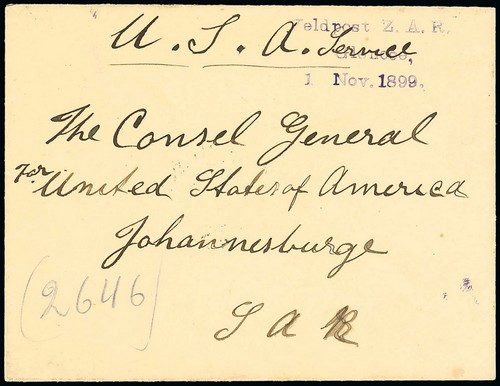 U. S. A. Service
Veldpost Z. A. R.
Glencoe,
1 Nov. 1899.
The Consel General
For United States of America
Johannesburge
(2646)
S A R